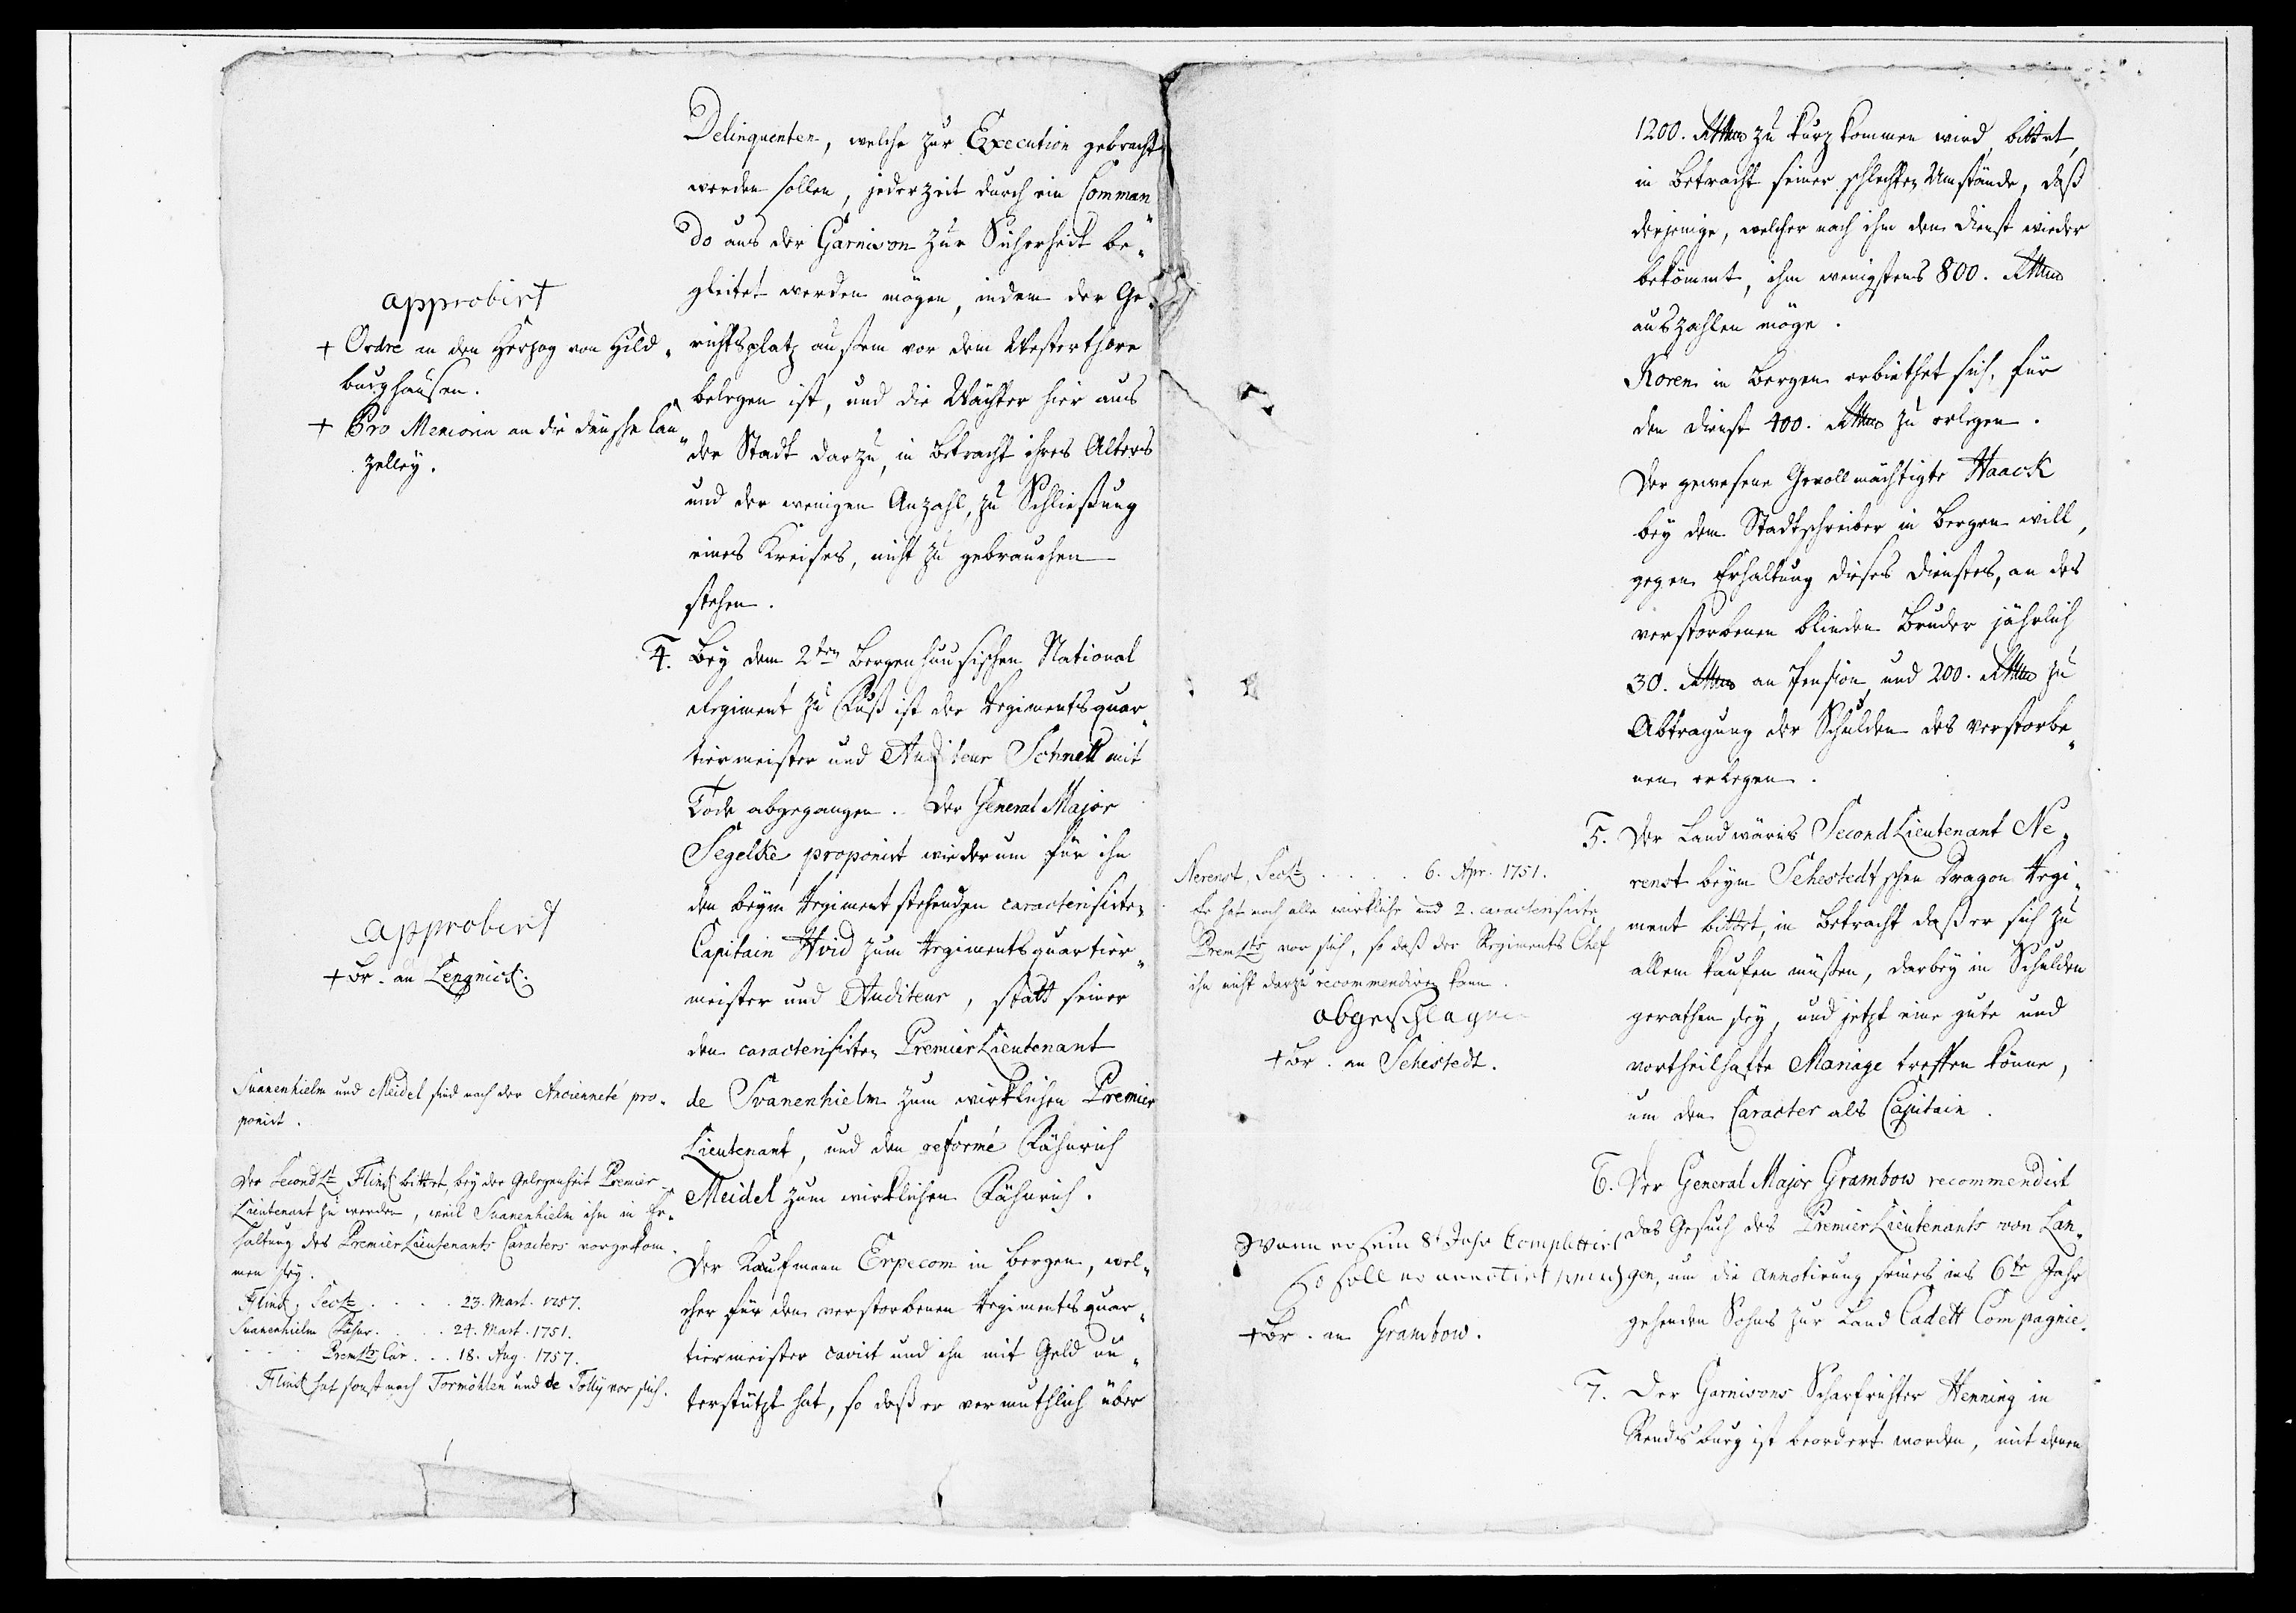 Delinquenten, welche zur Execution gebracht
werden sollen, jederzeit durch ein Comman„
do aus der Garnison zur Sicherheit be„
gleitet werden mögen, indem der Ge„
richtsplatz aussem vor dem Westerthore
belegen ist, und die Wächter hier aus
der Stadt darzu, in Betracht ihres Alters
und der wenigen Anzahl, zu Schließung
eines Kreises, nicht zu gebrauchen
stehen.
approbirt
+ Ordre an den Herzog von Hild„
burghausen.
+ Pro Memoria an die dänsche Can„
zelley.
4. Bey dem 2ten Bergenhuusischen National
Regiment zu Fuß ist der Regimentsquar„
tiermeister und Auditeur Schnell mit
Tode abgegangen. Der General Major
Segelke proponirt wiederum für ihn
den beym Regiment stehenden caracterisirten
Capitain Hvid zum Regimentsquartier„
meister und Auditeur, statt seiner
den caracterisirten Premier Lieutenant
de Svanenhielm zum wirklichen Premier
Lieutenant, und den reformé Fähnrich
Meidel zum wirklichen Fähnrich.
Der Kaufmann Erpecom in Bergen, wel„
cher für den verstorbenen Regimentsquar„
tiermeister cavirt und ihn mit Geld un„
terstützt hat, so daß er vermuthlich über
approbirt
+ Br. an Lengnick.
Svanenhielm und Meidel sind nach der Ancienneté pro„
ponirt.
Der Second Lt Flinck bittet, bey der Gelegenheit Premier
Lieutenant zu werden, weil Svanenhielm ihm in Er„
haltung des Premier Lieutenants Caracters vorgekom„
men sey.
Flinck, Seclt . . . . 23. Mart. 1757.
Svanenhielm Fähnr. . . . 24. Mart. 1751.
PremLt Car. . . 18. Aug. 1757.
Flinck hat sonst noch Tormöhlen und de Tolly vor sich.
1200. Rthlr zu kurz kommen wird, bittet,
in Betracht seiner schlechten Umstände, daß
derjenige, welcher nach ihm den Dienst wieder
bekömmt, ihm wenigstens 800. Rthlr
auszahlen möge.
Koren in Bergen erbiethet sich, für
den Dienst 400. Rthlr zu erlegen.
Der gewesene Gevollmächtigte Haack
bey dem Stadtschreiber in Bergen will,
gegen Erhaltung dieses Dienstes, an des
verstorbenen blinden Bruder jährlich
30. Rthlr an Pension, und 200. Rthlr zu
Abtragung der Schulden des verstorbe„
nen erlegen.
5. Der Landwärns Second Lieutenant Ne„
renst beym Sehestedtschen Dragon Regi„
ment bittet, in Betracht daß er sich zu
allem kaufen müßen, darbey in Schulden
gerathen sey, und jetzt eine gute und
vortheilhafte Mariage treffen könne,
um den Caracter als Capitain.
Nerenst, Seclt . . . . . 6. Apr. 1751.
Er hat noch alle wirkliche und 2. caracterisirte
PremLts vor sich, so daß der Regiments Chef
ihn nicht darzu recommendiren kann.
abgeschlagen
+ Br. an Sehestedt.
6. Der General Major Grambow recommendirt
das Gesuch des Premier Lieutenants von Lan„
gen, um die Annotirung seines ins 6te Jahr
gehenden Sohns zur Land Cadett Compagnie.
Wann er sein 8t Jahr Complettirt
so soll er annotirt
+ Br. an Grambow.
7. Der Garnisons Scharfrichter Henning in
Rendsburg ist beordert worden, mit denen